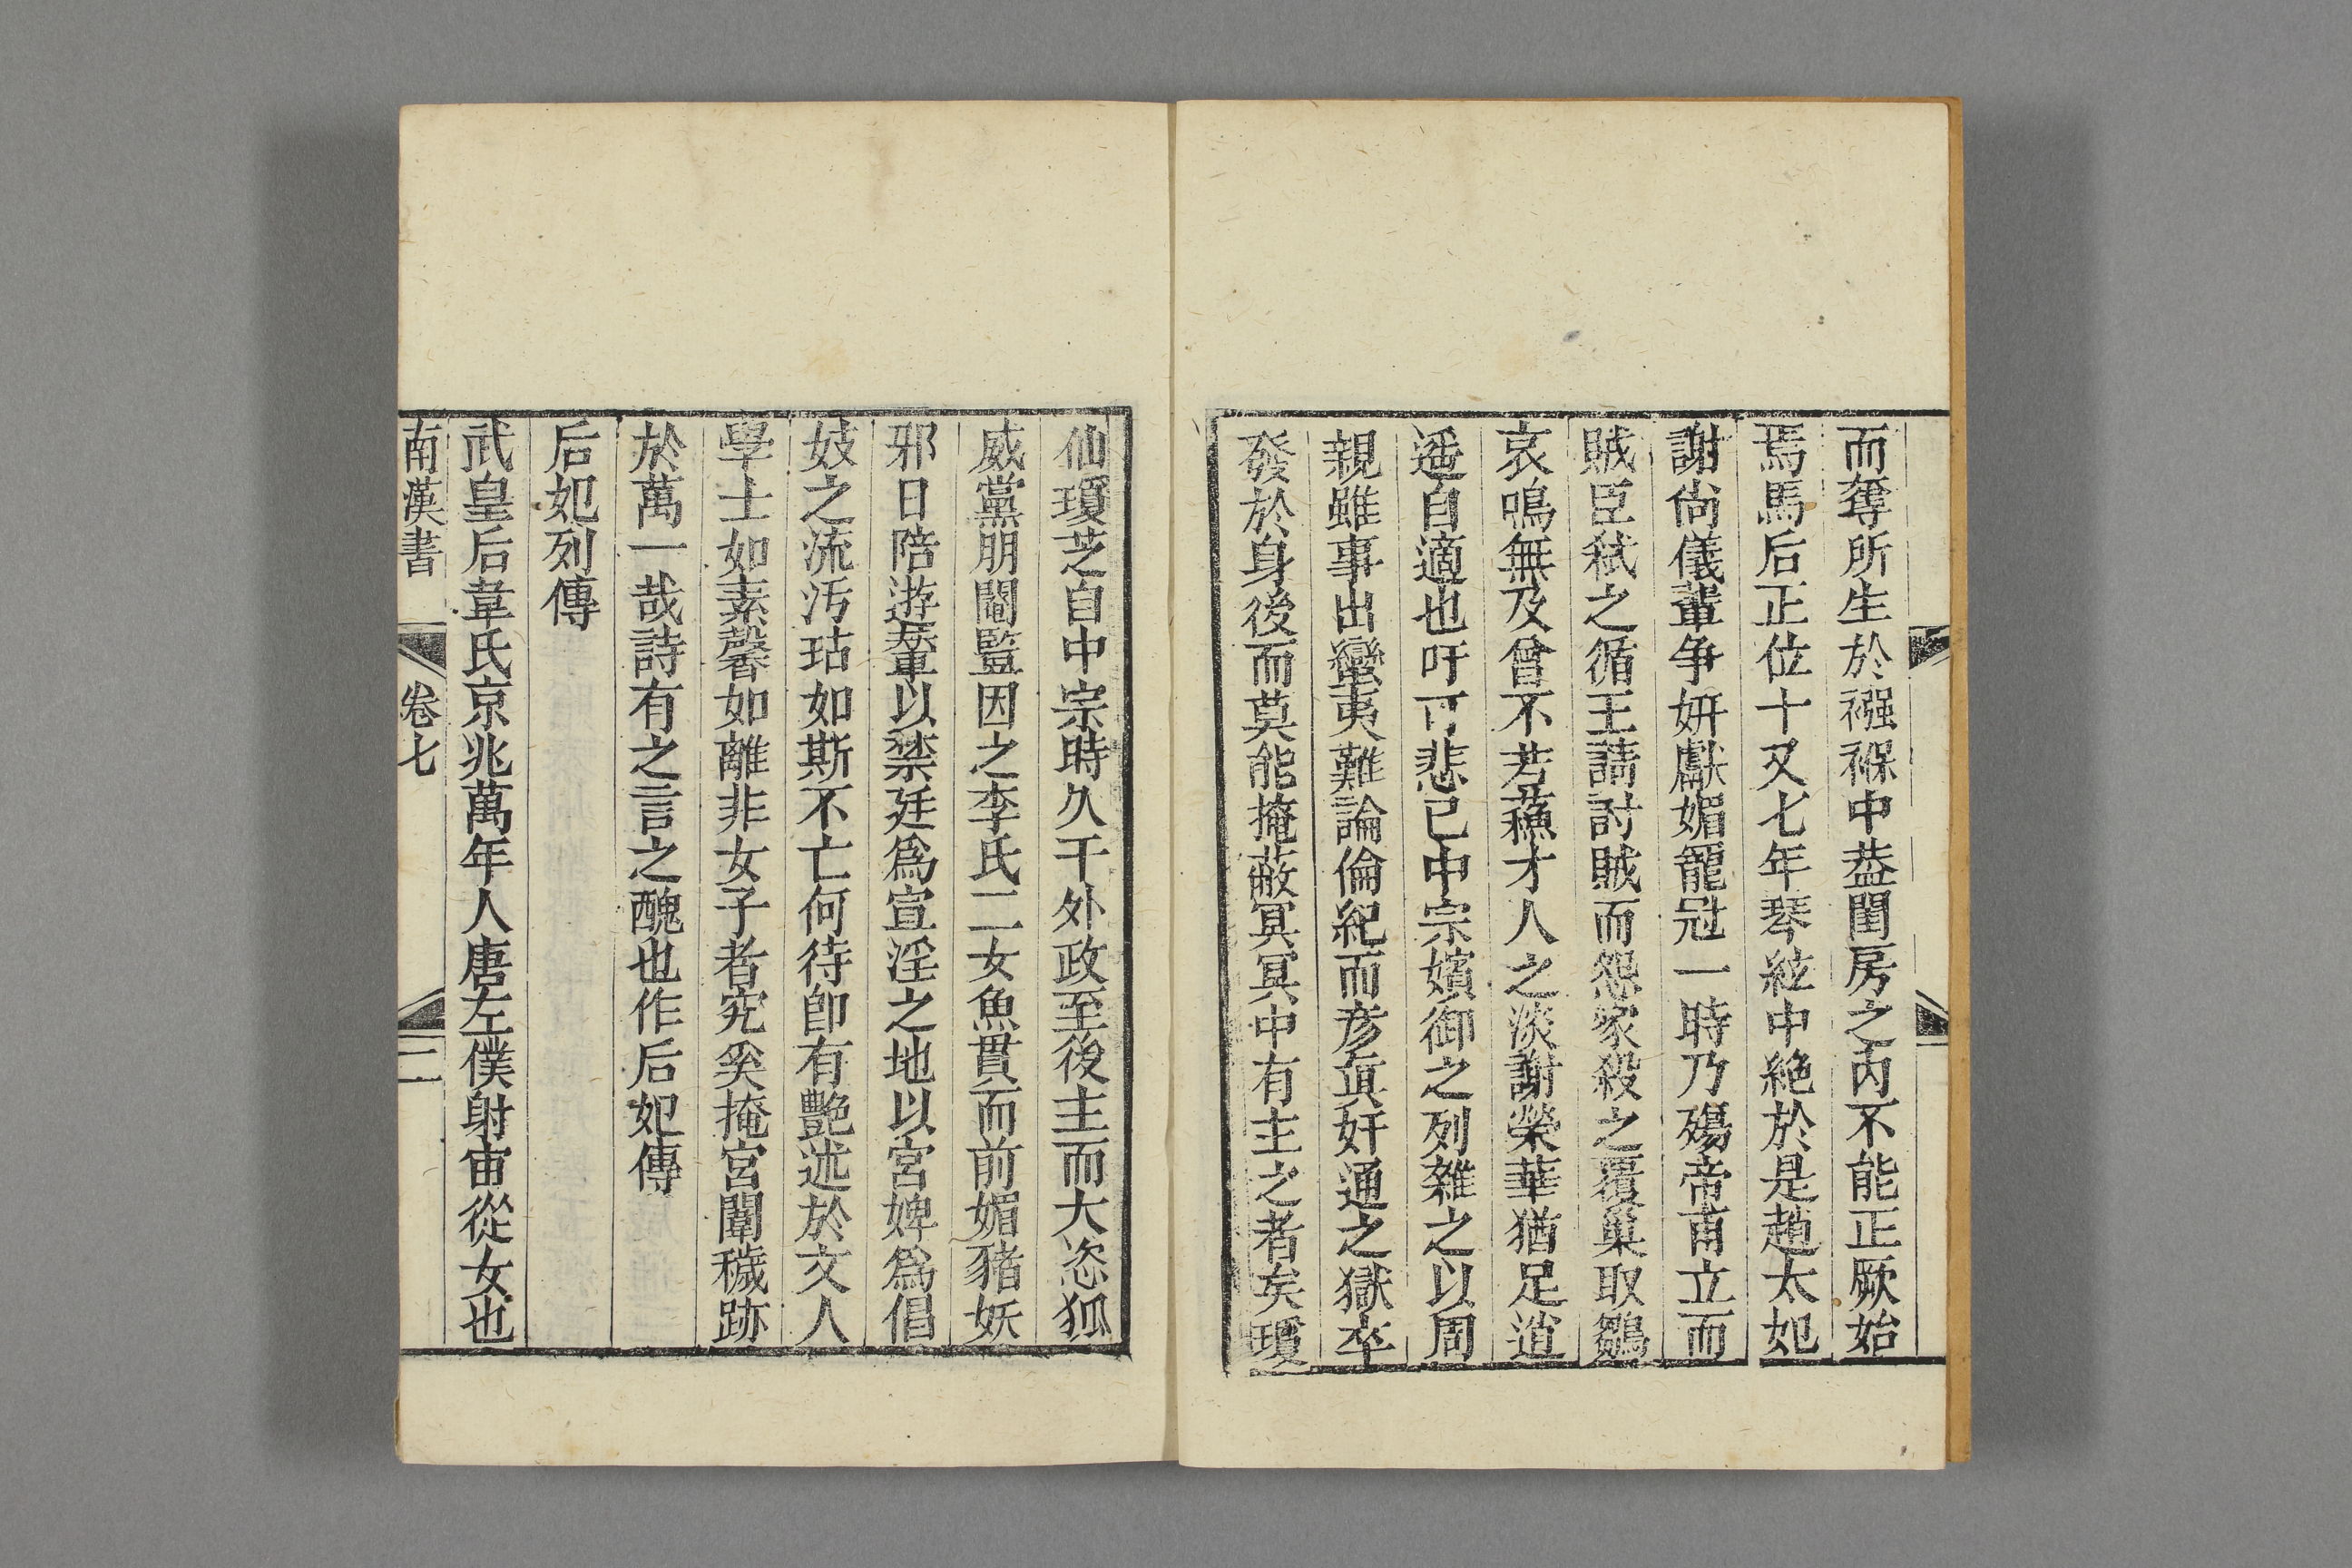 而奪所生於襁褓中葢閨房之内不能正厥始
焉馬后正位十又七年琴絃中絶於是趙太妃
謝尚儀輩争妍獻媚寵冠一時乃殤帝甫立而
賊臣弑之循王請討賊而怨家殺之覆巢取鶵
哀鳴無及曾不若蘓才人之淡謝榮華猶足逍
遥自適也吁可悲已中宗嬪御之列雜之以周
親雖事出蠻夷難論倫紀而彦眞奸通之獄卒
發於身後而莫能掩蔽冥冥中有主之者矣瓊
仙瓊芝自中宗時久干外政至後主而大恣狐
威黨朋閹豎因之李氏二女魚貫而前媚豬妖
邪日陪遊輦以禁廷爲宣淫之地以宮婢爲倡
妓之流汚玷如斯不亡何待卽有艷述於文人
學士如素馨如離非女子者究奚掩宮闈穢跡
於萬一哉詩有之言之醜也作后妃傳
后妃列傳
武皇后韋氏京兆萬年人唐左僕射宙從女也
南漢書 卷七 二